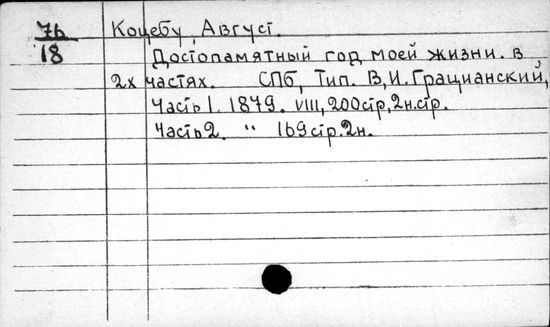 76 Коцебу, Август.
18 Достопамятный год моей жизни. в
2х частях. СПб, Тип. В.И. Грацианский,
Часть 1. 1879. VIII, 200 стр, 2н.стр.
Часть 2. " 169 стр. 2н.